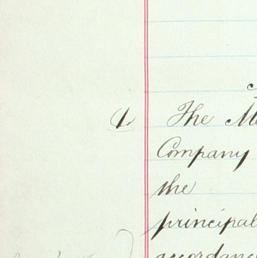 1. The
Company
the
principal
accordance